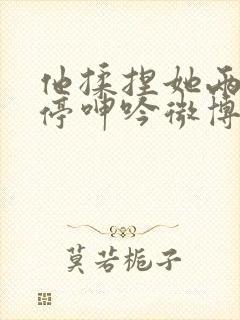 他揉捏她两
停呻吟微博
莫若栀子